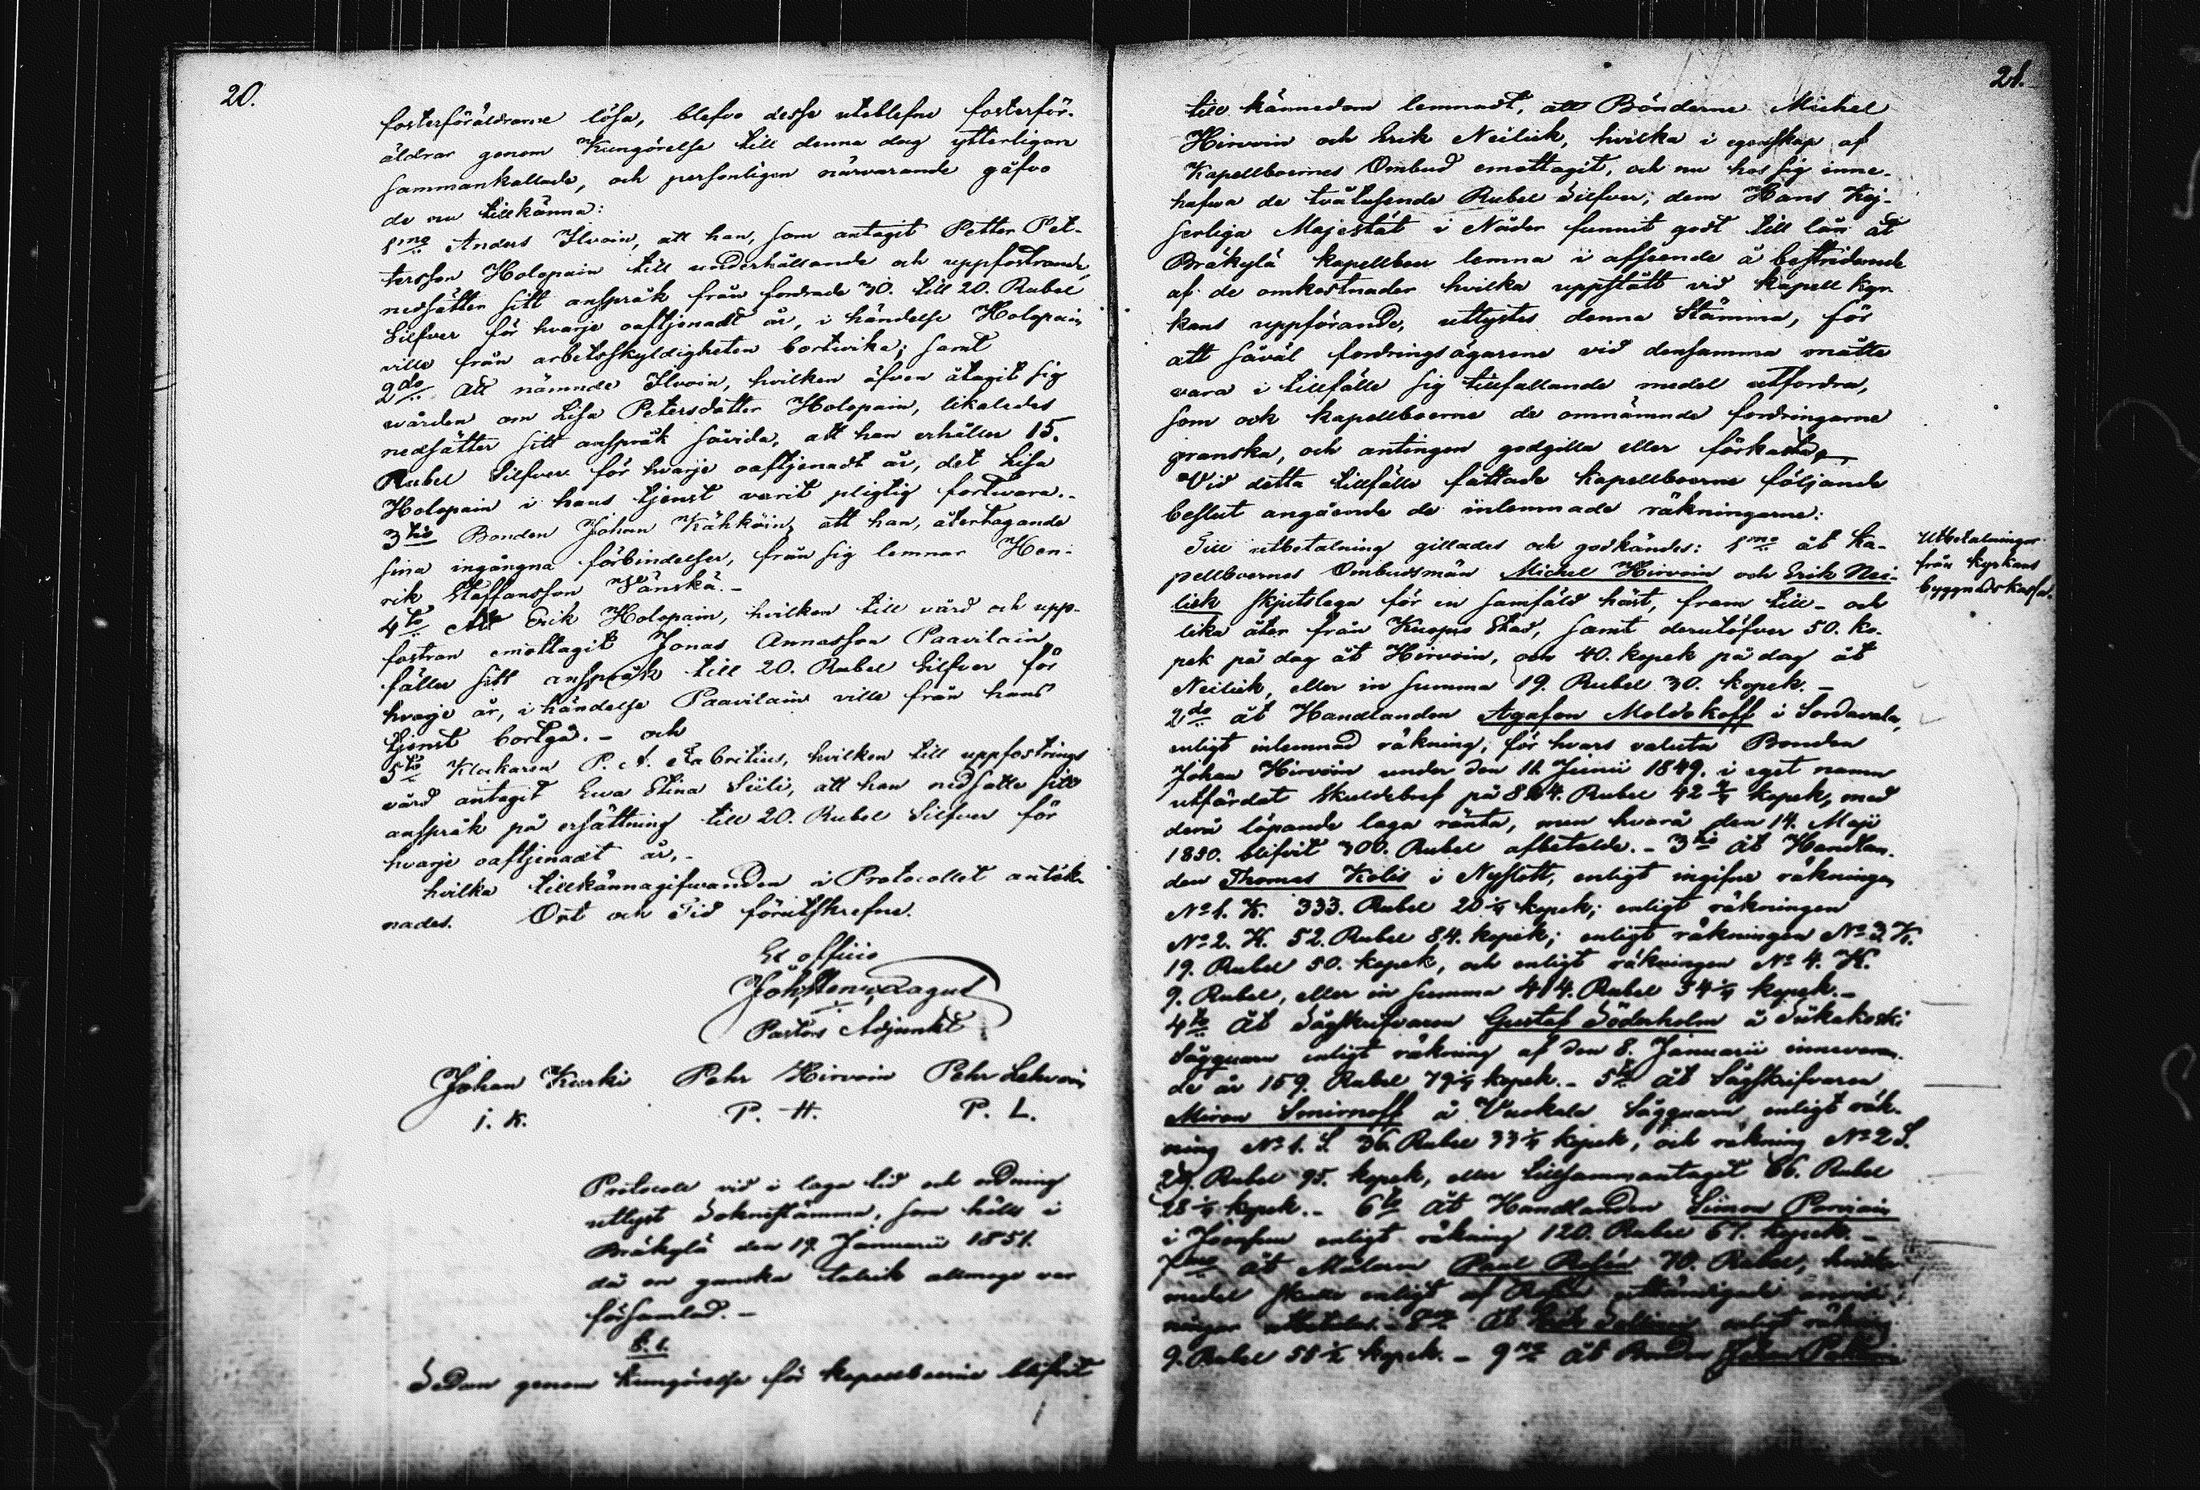 20.
fosterföräldrarne lösa, blefvo desse uteblefne fosterför-
äldrar genom Kungörelse till denna dag ytterligare
sammankallade, och personligen närvarande gåfvo
de nu tillkänna:
1mo Anders Ilvoin, att han, som antagit Petter Pet-
tersson Holopain till underhållande och uppfostrande,
nedsätter sitt anspråk från fordrade 30. till 20. Rubel
Silfver för hvarje oaftjenadt år, i händelse Holopain
ville från arbetsskyldigheten bortvika; samt
2do Att nämnde Ilvoin, hvilken äfven åtagit sig
vården om Lisa Petersdotter Holopain, likaledes
nedsätter sitt anspråk såvida, att han erhåller 15.
Rubel Silfver för hvarje oaftjenadt år, det Lisa
Holopain i hans tjenst varit pligtig fortvara.-
3tio Bonden Johan Kähköin, att han, återtagande
sina ingångna förbindelser, från sig lemnar Hen-
rik Staffansson Vänskä.-
4to Att Erik Holopain, hvilken till vård och upp-
fostran emottagit Jonas Annasson Paavilain,
fäller sitt anspråk till 20. Rubel Silfver för
hvarje år, i händelse Paavilain ville från hans
tjenst bortgå. - och
5to Klockaren P. A. Fabritius, hvilken till uppfostrings
vård antagit Ewa Stina Siili, att han nedsatte sitt
anspråk på ersättning till 20. Rubel Silfver för
hvarje oaftjenadt år,-
hvilka tillkännagifwanden i Protocollet anteck-
nades. Ort och Tid förutskrefne.
Ex officio
Joh, Henr, Lagus
Pastors Adjunkt
Johan Kurki Pehr Hirvoin Pehr Lehvoin
J. K. P. H. P. L.
Protocoll vid i laga tid och ordning
utlyst Sokenstämma, som hölls i
Bräkylä den 19 Januarii 1851.
då en ganska talrik allmoge var
församlad. -
§. 1.
Sedan genom Kungörelse för kapellboerne blifvit
21.
till kännedom lemnadt, att Bönderne Michel
Hirvoin och Erik Neilick, hvilka i egenskap af
Kapellboernes Ombud emottagit, och nu hos sig inne-
hafva de tvåtusende Rubel Silfver, dem Hans Kej-
serliga Majestät i Nåder funnit godt till lån åt
Bräkylä kapellboer lemna i afseende å bestridande
af de omkostnader hvilka uppstått vid kapell kyr-
kans uppförande, utlystes denna Stämma, för
att såväl fordringsägarene vid densamma måtte
vara i tillfälle sig tillfallande medel utfordra,
som ock kapellboerne de omnämnde fordringarne
granska, och antingen godgilla eller förkasta,
Vid detta tillfälle fattade kapellboerne följande
beslut angående de inlemnade räkningarne:
Till utbetalning gillades och godkändes: 1mo åt Ka-
pellboernes Ombudsmän Michel Hirvoin och Erik Nei-
lick skjutslega för en samfäld häst, fram till- och
lika åter från Kuopio Stad, samt derutöfver 50. ko-
pek på dag åt Hirvoin, och 40. kopek på dag åt
Neilick, eller in summa 19. Rubel 30. kopek. -
2do åt Handlanden Agafon Moldakoff i Sordavala,
enligt inlemnad räkning, för hvars valuta Bonden
Johan Hirvoin under den 11. Junii 1849. i eget namn
utfärdat Skuldebref på 864. Rubel 42 kopek, med
derå löpande laga ränta, men hvarå den 14. Maji
1850. blifvit 300. Rubel afbetalde. - 3tio åt Handlan-
den Thomas Kolis i Nyslott, enligt ingifne räkningen
No 1. K. 333. Rubel 20 kopek; enligt räkningen
No 2. K. 52. Rubel 84. kopek; enligt räkningen No 3. K.
19. Rubel 50. kopek, och enligt räkningen No 4. K.
9. Rubel, eller in summa 414. Rubel 54 kopek. -
4to Åt Sågskrifvaren Gustaf Söderholm å Siikakoski
Sågquarn enligt räkning af den 8. Januarii innevaran-
de år 159. Rubel 79 kopek. - 5to åt Sågskrifvaren
Miron Smirnoff å Vuokala Sågquarn, enligt räk-
ning No 1. S. 36. Rubel 33 kopek, och räkning No 2 S.
29. Rubel 95. kopek, eller tillsammantaget 66. Rubel
28 kopek. - 6to Åt Handlanden Simon Parviain
i Joensuu enligt räkning 120. Rubel 61. kopek. -
7mo åt Målaren Paul Rosén 70. Rubel, hvilka
medel skulle enligt af
utbetalas. - 8vo åt enligt räkning
9. Rubel 58 ½ kopek. - 9no åt Bonden Johan
Utbetalningar
från kyrkans
byggnadskassa.